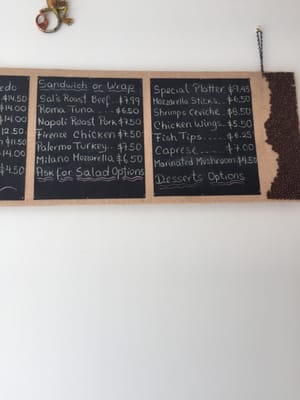 edo
$14.50
$14.00
$14.00
12.50
$11.50
14.00
$4.50
Sandwich or Wrap
Sal's Roast Beef..$7.99
Roma Tuna....$6.50
Napoli Roast Pork $7.50
Firenze Chicken $7.50
Palermo Turkey..$7.50
Milano Mozzarella $6.50
Ask for Salad Options
Special Platter $9.95
Mozzarella Sticks..$6.50
Shrimps Ceviche $8.50
Chicken Wings..$5.50
Fish Tips....$6.25
Caprese....$7.00
Marinated Mushroom $4.50
Desserts Options